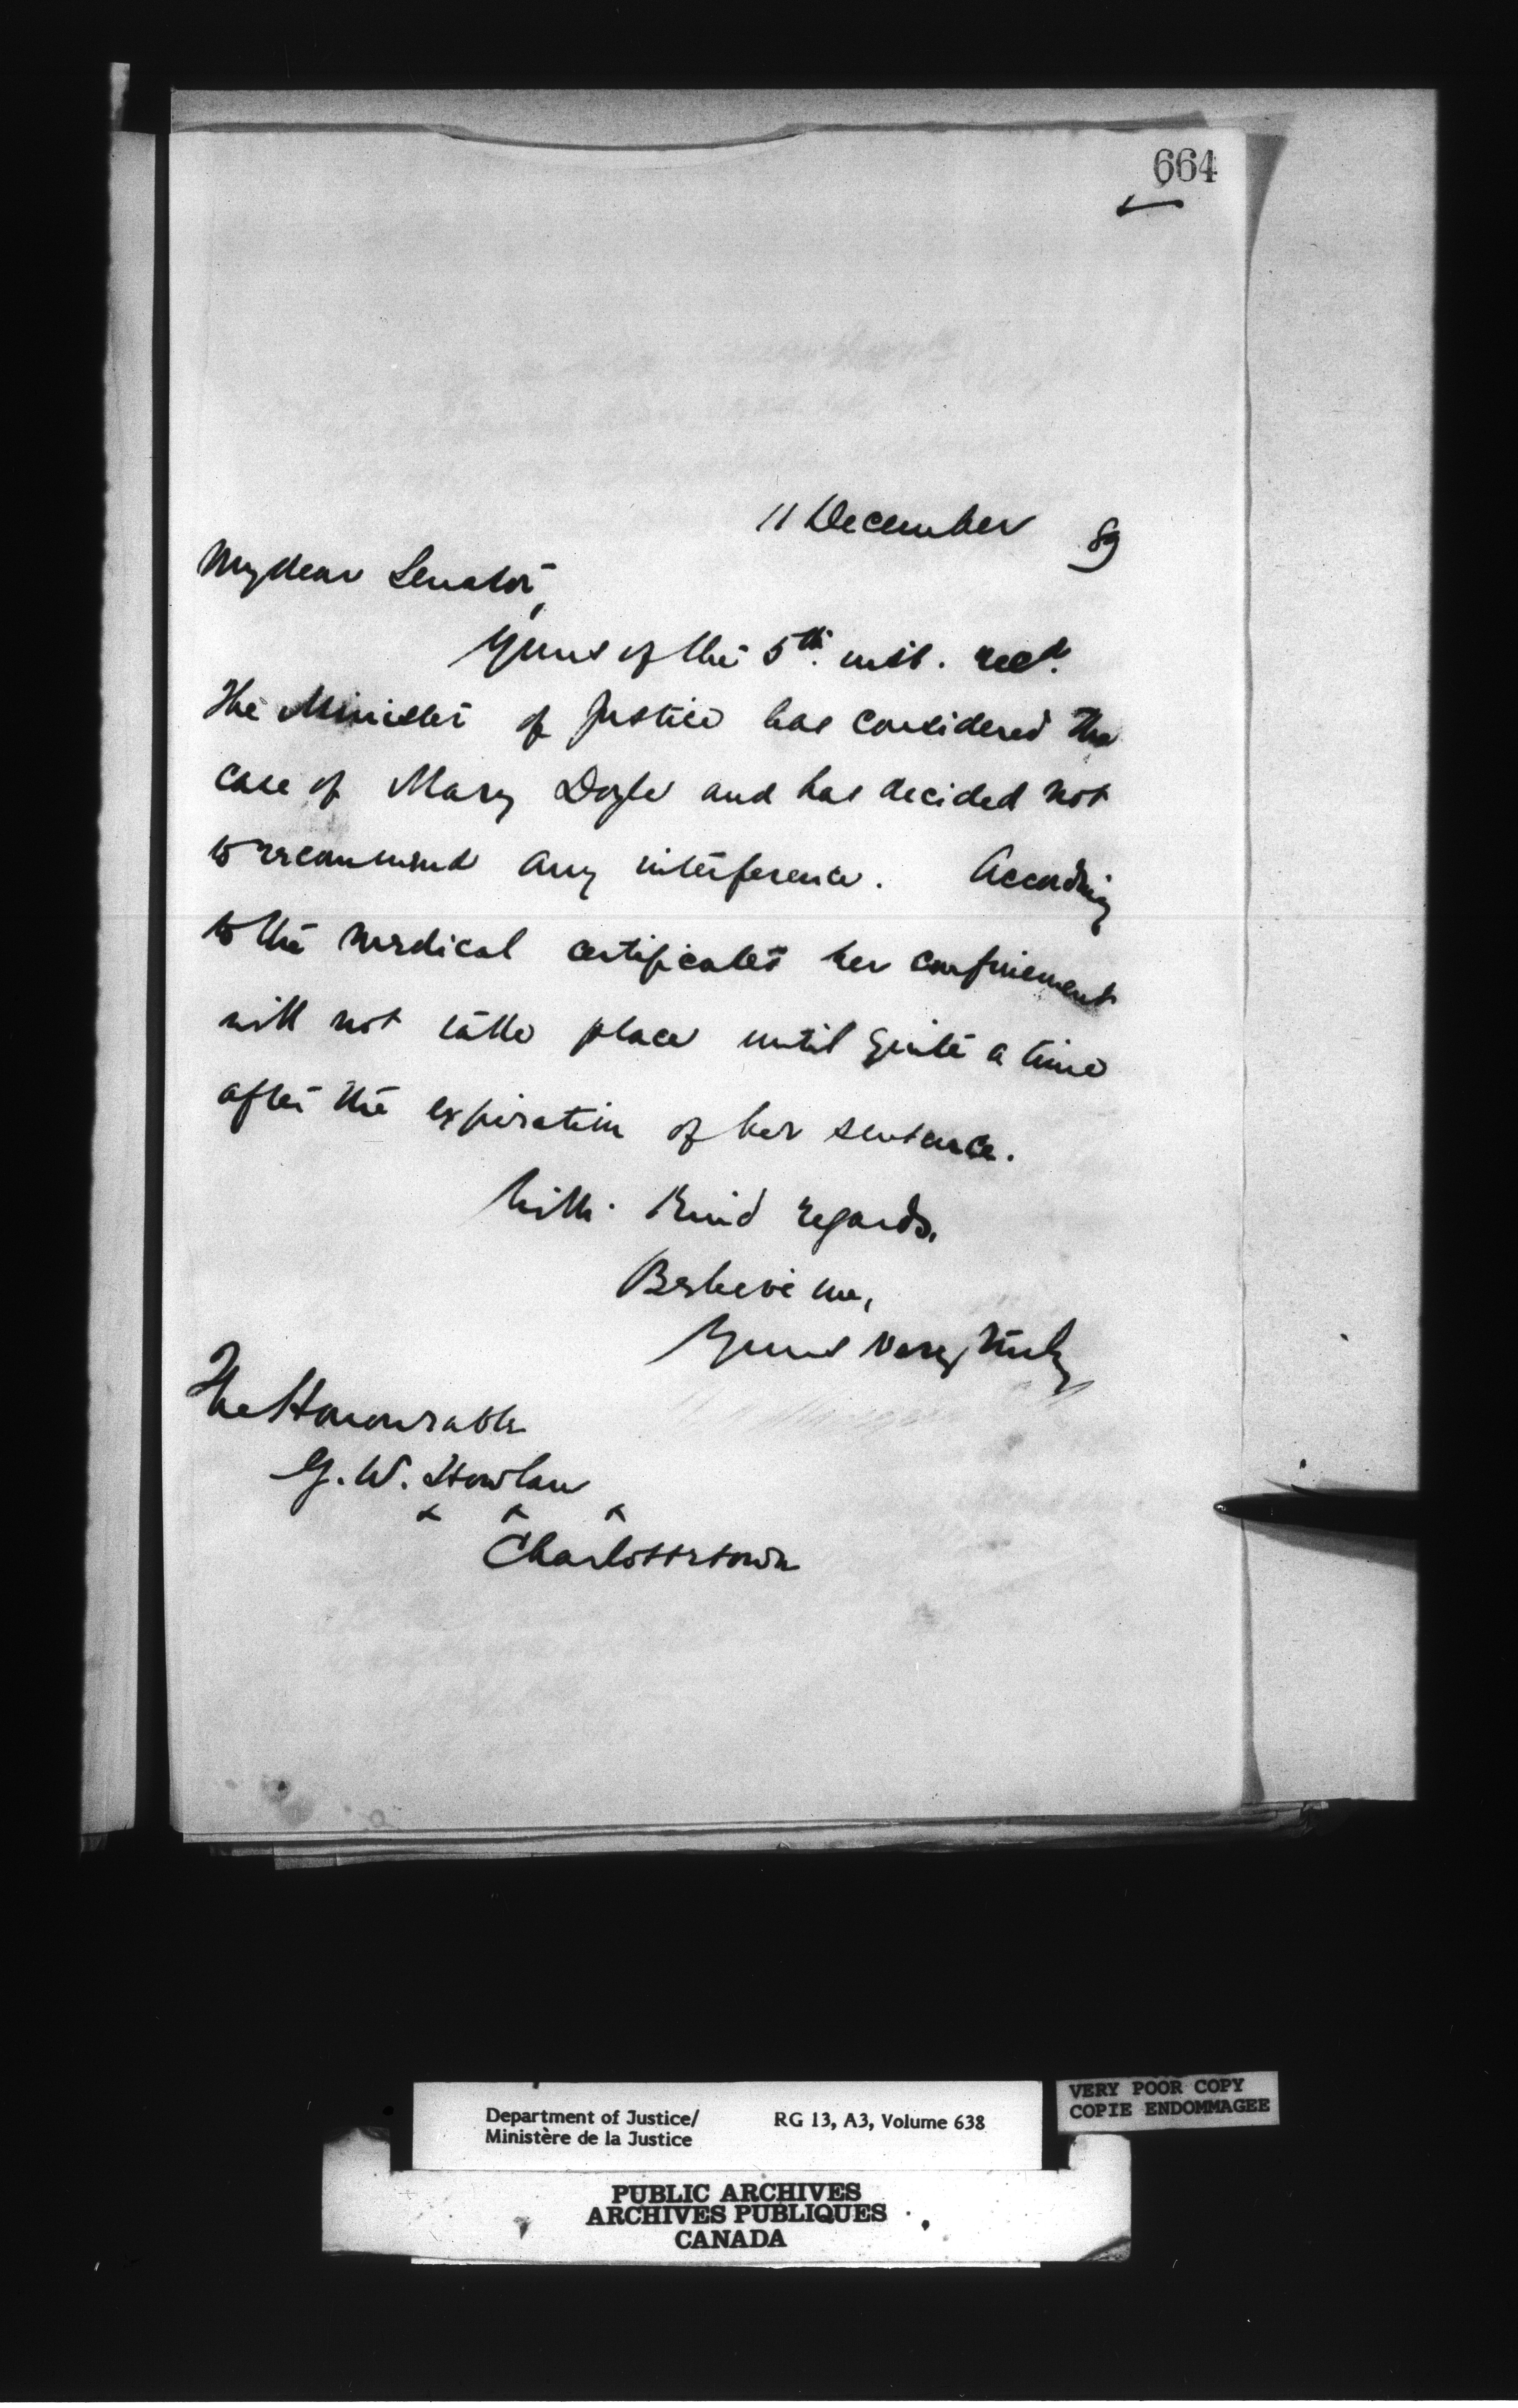 664
11 December 89
My dear Senator,
Yours of the 5th. inst. recd.
The Minister of Justice has considered the
case of Mary Doyle and has decided not
to recommend any interference. According
to the medical certificates her confinement
will not take place until quite a time
after the expiration of her sentence.
With kind regards,
Believe me,
Yours very truly
The Honourable
G. W. Howlan
Charlottetown
Department of Justice/ RG 13, A3, Volume 638
Ministère de la Justice
VERY POOR COPY
COPIE ENDOMMAGEE
PUBLIC ARCHIVES
ARCHIVES PUBLIQUES
CANADA